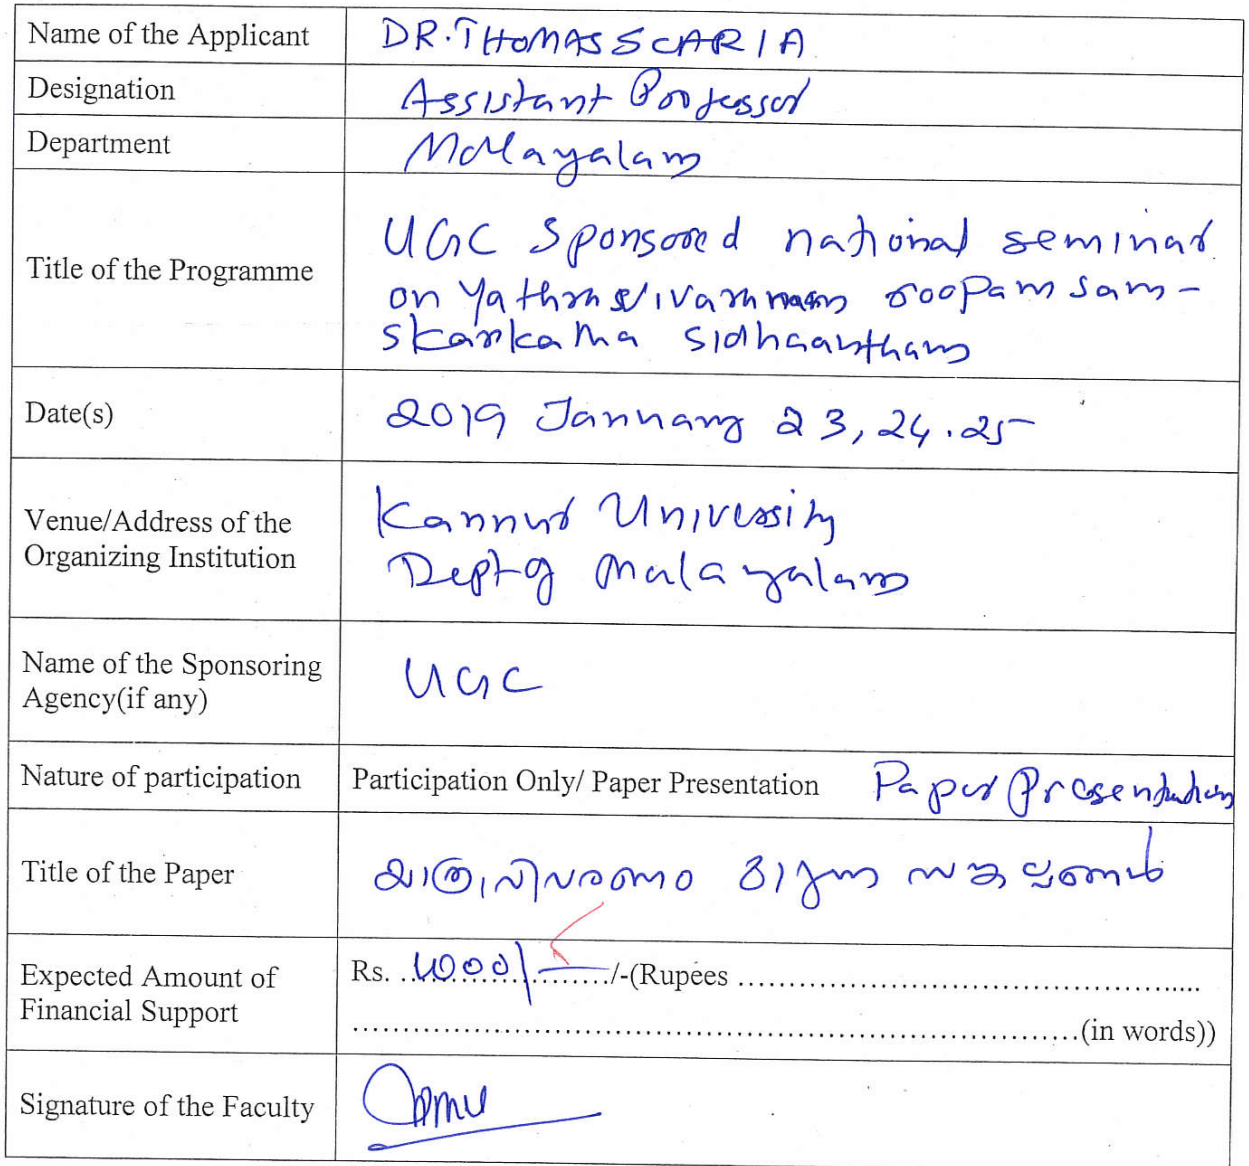 Name of the Applicant DR. THOMAS SCARIA
Designation Assistant Professor
Department Malayalam
Title of the Programme
UGC Sponsored national seminar
on Yathra vivarannam roopam sam-
skarikatha sidhaantham
Date(s) 2019 January 23, 24. 25
Venue/Address of the
Organizing Institution
Kannur University
Dept of Malayalam
Name of the Sponsoring
Agency(if any)
UGC
Nature of participation Participation Only/ Paper Presentation Paper Presentation
Title of the Paper യാത്രാവിവരണം സങ്കല്പങ്ങൾ
Expected Amount of
Financial Support
Rs. ...................../-(Rupees ................................................
........................................................................(in words))
Signature of the Faculty